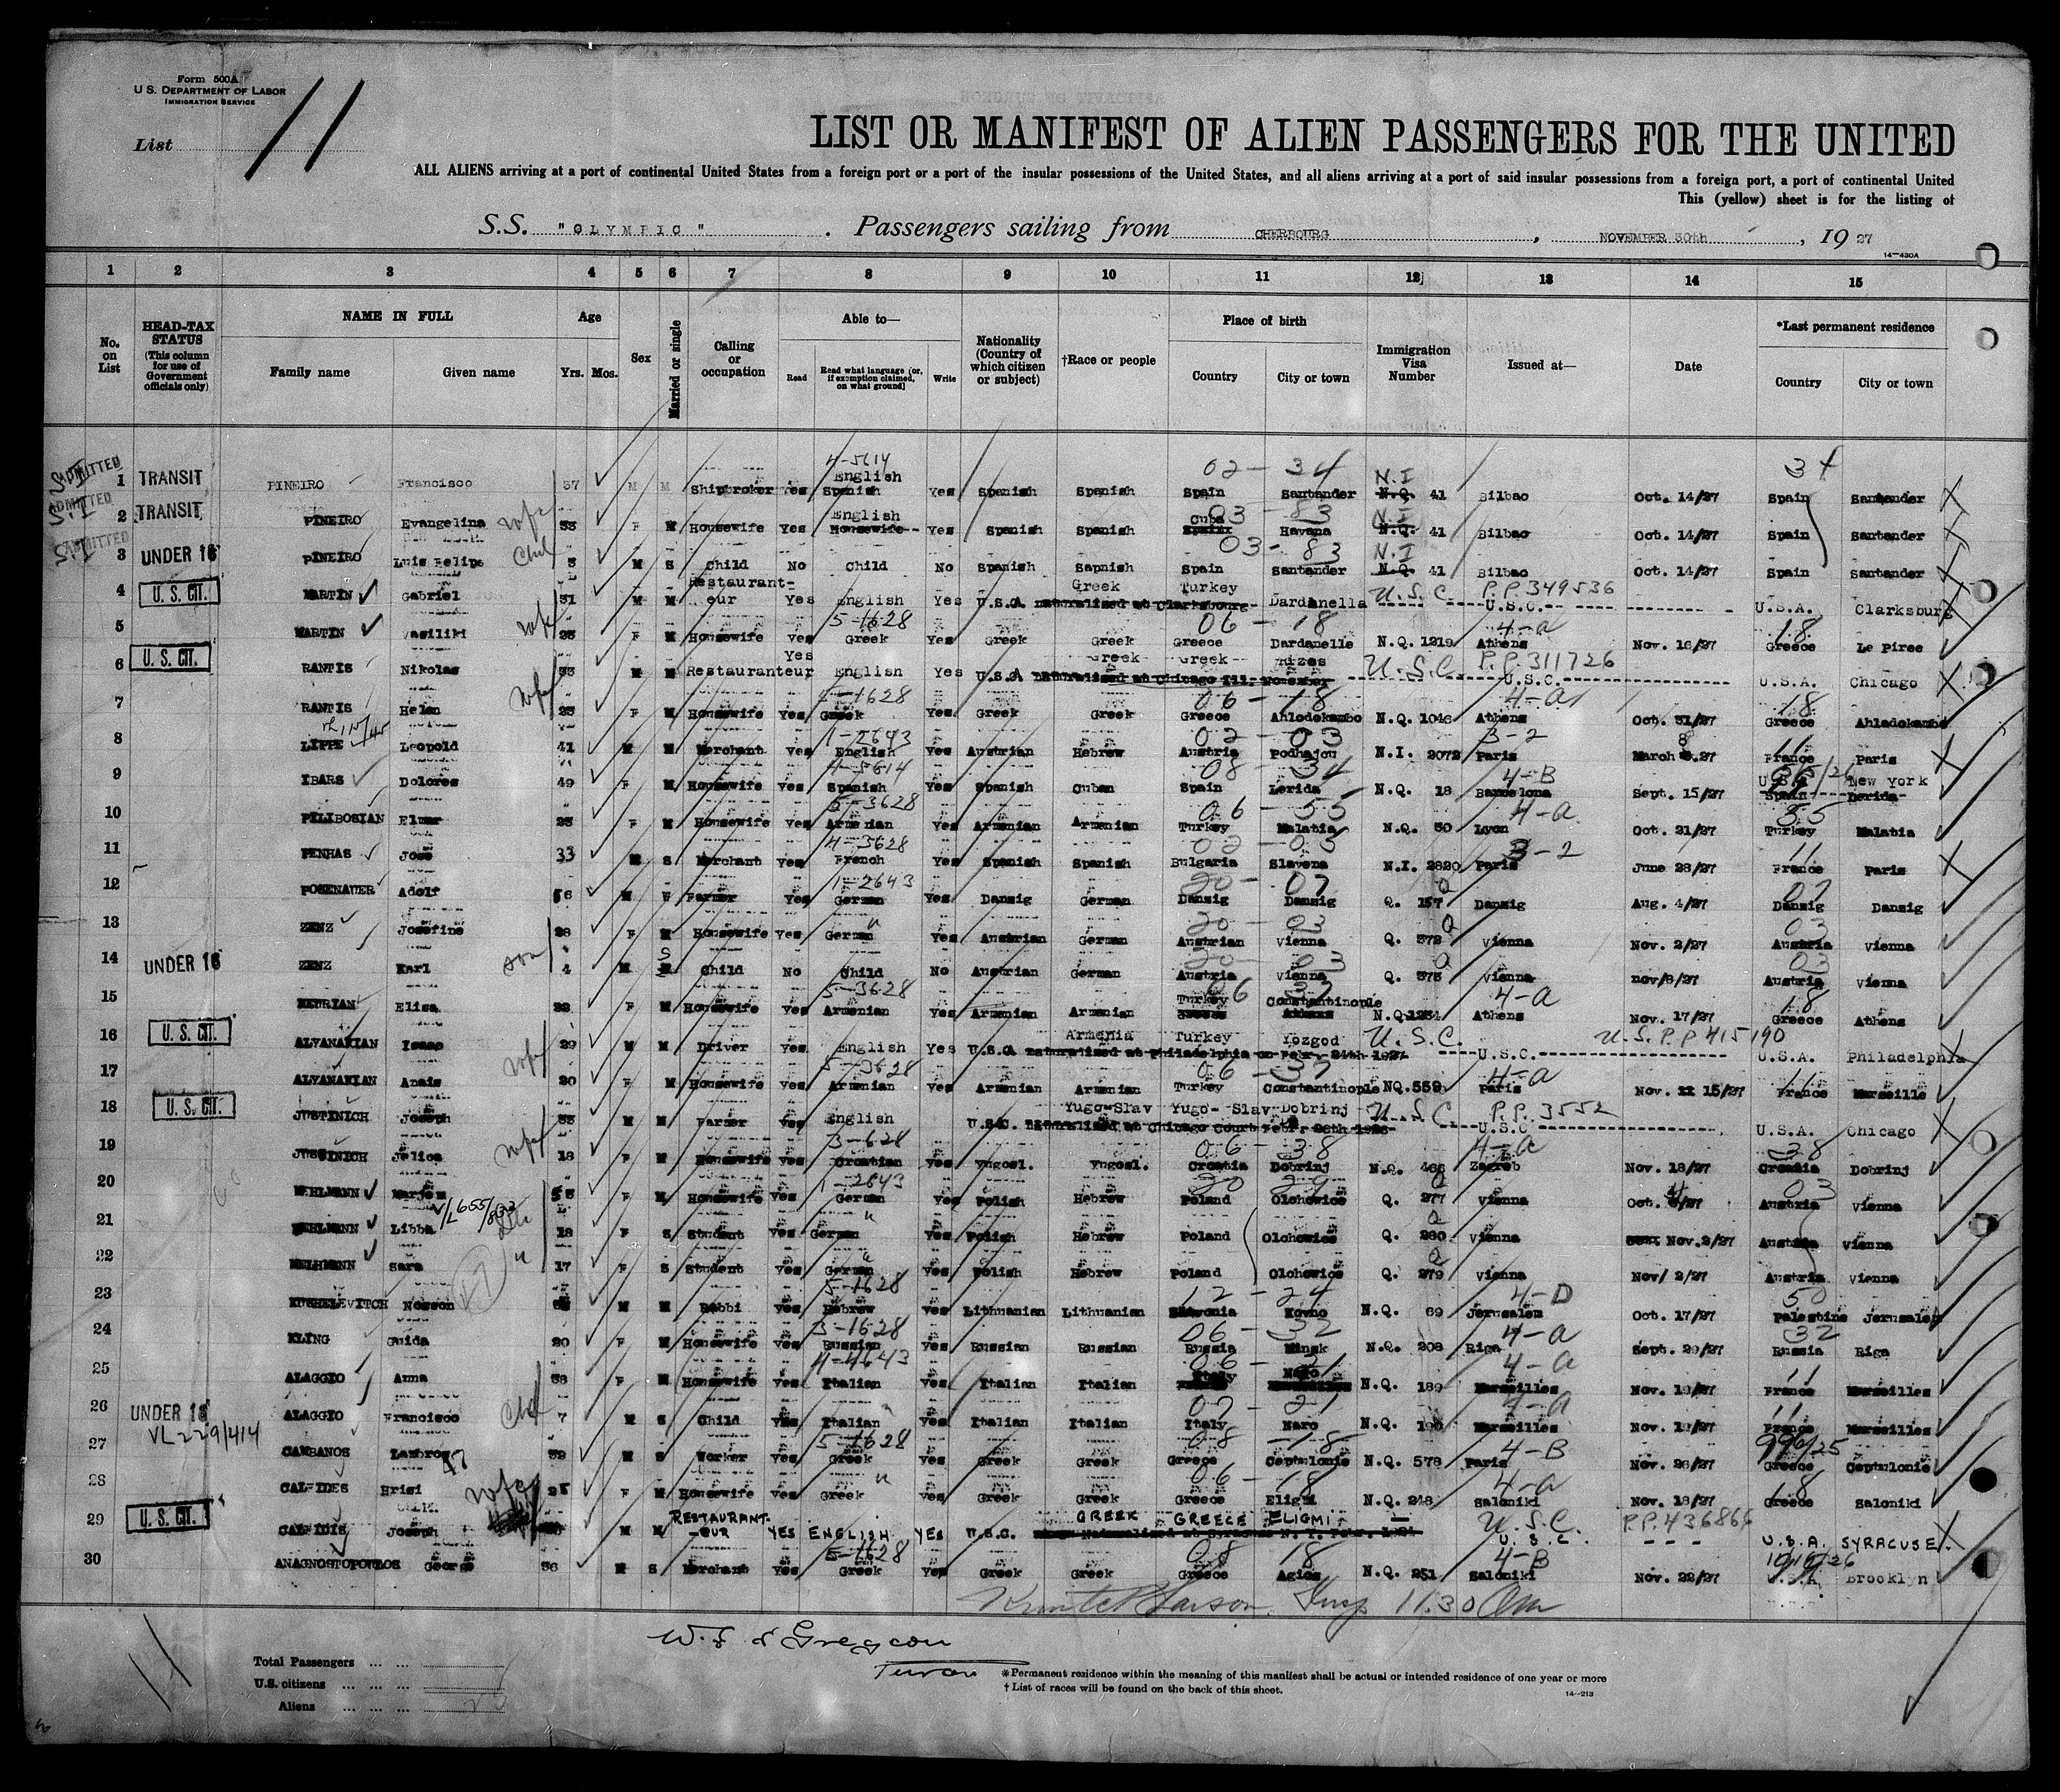 Form 500A
U.S. DEPARTMENT OF LABOR
IMMIGRATION SERVICE
List 11
LIST OR MANIFEST OF ALIEN PASSENGERS FOR THE UNITED
ALL ALIENS arriving at a port of continental United States from a foreign port or a port of the insular possessions of the United States, and all aliens arriving at a port of said insular possessions from a foreign port, a port of continental United
This (yellow) sheet is for the listing of
S.S. "OLYMPIC". Passengers sailing from CHERBOURG, NOVEMBER 30th, 1927
14—430A
1 2 3 4 5 6 7 8 9 10 11 12 13 14 15
No. on List
HEAD-TAX STATUS (This column for use of Government officials only)
NAME IN FULL
Family name Given name
Age
Yrs. Mos.
Sex
Married or single
Calling or occupation
Able to—
Read Read what language (or, if exemption claimed, on what ground) Write
Nationality (Country of which citizen or subject)
†Race or people
Place of birth
Country City or town
Immigration Visa Number
Issued at—
Date
*Last permanent residence
Country City or town
4-5614 02 - 34 N.I 34
ADMITTED 1 TRANSIT PINEIRO Francisco 37 M M Shipbroker Yes English Spanish Yes Spanish Spanish Spain Santander N.Q. 41 Bilbao Oct. 14/27 Spain Santander
03 - 83 N.I
ADMITTED 2 TRANSIT PINEIRO Evangelina wife 33 F M Housewife Yes English Housewife Yes Spanish Spanish Cuba Havana N.Q. 41 Bilbao Oct. 14/27 Spain Santander
03 - 83 N.I
ADMITTED 3 UNDER 16 PINEIRO Luis Felipe Chil 3 M S Child No Child No Spanish Sapnish Spain Santander N.Q. 41 Bilbao Oct. 14/27 Spain Santander
4 U. S. CIT. MARTIN Gabriel 31 M M Restaurant-eur Yes English Yes U.S.A naturalized at Clarksburg Greek Turkey Dardanella U.S.C P.P. 349536 U.S.C. U.S.A. Clarksburg
5-1628 06 - 18 4-a 18
5 MARTIN Vasiliki wife 25 F M Housewife Yes Greek Yes Greek Greek Greece Dardanelle N.Q. 1219 Athens Nov. 16/27 Greece Le Piree
6 U. S. CIT. RANTIS Nikolas 33 M M Restauranteur Yes English Yes U.S.A naturalized at Chicago Ill. November Greek Greek Rizes U.S.C P.P. 311726 U.S.C. U.S.A. Chicago
5-1628 06 - 18 4-a 18
7 RANTIS Helen wife 25 F M Housewife Yes Greek Yes Greek Greek Greece Ahlodokambo N.Q. 1046 Athens Oct. 31/27 Greece Ahladokambo
1-2643 02 - 03 3-2 11
8 LIPPE Leopold 41 M M Merchant Yes English Yes Austrian Hebrew Austria Podhajou N.I. 2072 Paris March 8.27 France Paris
4-5614 08 - 34 4-B
9 IBARS Dolores 49 F M Housewife Yes Spanish Yes Spanish Cuban Spain Lerida N.Q. 18 Barcelona Sept. 15/27 U.S.A. New York
5-3628 06 - 55 4-a 55
10 PILIBOSIAN Elmar 25 F M Housewife Yes Armenian Yes Armenian Armenian Turkey Malatia N.Q. 50 Lyon Oct. 21/27 Turkey Malatia
4-3628 02 - 05 3-2 11
11 PENHAS José 33 M S Merchant Yes French Yes Spanish Spanish Bulgaria Slavena N.I. 2820 Paris June 28/27 France Paris
1-2643 20 - 07 Q 07
12 POSENAUER Adolf 56 M Farmer Yes German Yes Danzig German Danzig Danzig Q. 157 Danzig Aug. 4/27 Danzig Danzig
20 - 03 Q 03
13 ZENZ Josefine 28 F M Housewife Yes German Yes Austrian German Austrian Vienna Q. 572 Vienna Nov. 2/27 Austria Vienna
20 - 03 Q 03
14 UNDER 16 ZENZ Karl son 4 M S Child No Child No Austrian German Austria Vienna Q. 573 Vienna nov/8/27 Austria Vienna
5-3628 06 37 4-a 18
15 Elisa 22 F M Housewife Yes Armenian Yes Armenian Armenian Turkey Constantinople N.Q. 1234 Athens Nov. 17/27 Greece Athens
16 U. S. CIT. ALVANAKIAN Isaac 29 M M Driver Yes English Yes U.S.A naturalized at Philadelphia on Febr. 24th 1927 Armenia Turkey Yozgod U.S.C. U.S.C. U.S.P.P 415190 U.S.A. Philadelphia
5-3628 06 - 37 4-a 11
17 ALVANAKIAN Anais wife 20 F M Housewife Yes Armenian Yes Armenian Armenian Turkey Constantinople NQ.559 Paris Nov. 15/27 France Marseille
18 U. S. CIT. JUSTINICH Joseph 33 M M Farmer Yes English U.S.C. Naturalized at Chicago Court Yugo-Slav Yugo-Slav Dobrinj U.S.C P.P. 3552 U.S.C U.S.A. Chicago
3-628 06 - 38 4-a 38
19 JUSTINICH Jelica wife 18 F M Housewife Yes Croatian Yes Yugosl. Yugosl. Croatia Dobrinj N.Q. 466 Zagreb Nov. 18/27 Croatia Dobrinj
1-2643 20 29 Q 03
20 MEHLMANN Marjem 55 F M Housewife Yes German Yes Polish Hebrew Poland Olchowice Q. 277 Vienna Oct. 4/27 Austria Vienna
21 MEHLMANN Libba 18 F S Student Yes German Yes Polish Hebrew Poland Olchowice Q. 280 Vienna Nov.2/27 Austria Vienna
22 MEHLMANN Sara 17 F S Student Yes German Yes Polish Hebrew Poland Olchowice Q. 279 Vienna Nov/ 2/27 Austria Vienna
5-1628 12 - 24 4-D 50
23 KUSHELEVITCH Nosson M M Rabbi Yes Hebrew Yes Lithuanian Lithuanian Kovno N.Q. 69 Jerusalem Oct. 17/27 Palestine Jerusalem
3-1628 06 - 32 4-a 32
24 KLING Guida 20 F M Housewife Yes Russian Yes Russian Russian Russia Minsk N.Q. 208 Riga Sept. 29/27 Russia Riga
4-4643 06 - 21 4-a 11
25 ALAGGIO Anna 38 F M Housewife Yes Italian Yes Italian Italian Italy Naro N.Q. 189 Marseilles Nov. 19/27 France Marseilles
07 - 21 4-a 11
26 UNDER 16 ALAGGIO Francisco Chd 7 M S Child Yes Italian Yes Italian Italian Italy Naro N.Q. 190 Marseilles Nov. 19/27 France Marseilles
VL 229/414 5-1628 08 - 18 4-B
27 CAMBANOS Lambros 39 M S Worker Yes Greek Yes Greek Greek Greece Cephalonie N.Q. 578 Paris Nov. 26/27 Greece Cephalonie
06 - 18 4-a 18
28 CALFIDES Hrisi wife 25 F M Housewife Yes Greek Yes Greek Greek Greece Eligmi N.Q. 248 Saloniki Nov. 18/27 Greece Saloniki
29 U. S. CIT. CALFIDIS Joseph M M RESTAURANT-EUR YES ENGLISH YES U.S.C. Naturalized at Syracuse N. Y. GREEK GREECE ELIGMI U.S.C. U.S.C. P.P. 436866 U.S.A. SYRACUSE
5-1628 08 18 4-B
30 ANAGNOSTOPOULOS George 36 M S Merchant Yes Greek Yes Greek Greek Greece Agios N.Q. 251 Saloniki Nov. 22/27 U.S.A. Brooklyn
Insp 11.30 am
11
Total Passengers
U.S. citizens
Aliens
*Permanent residence within the meaning of this manifest shall be actual or intended residence of one year or more
† List of races will be found on the back of this sheet.
14—213